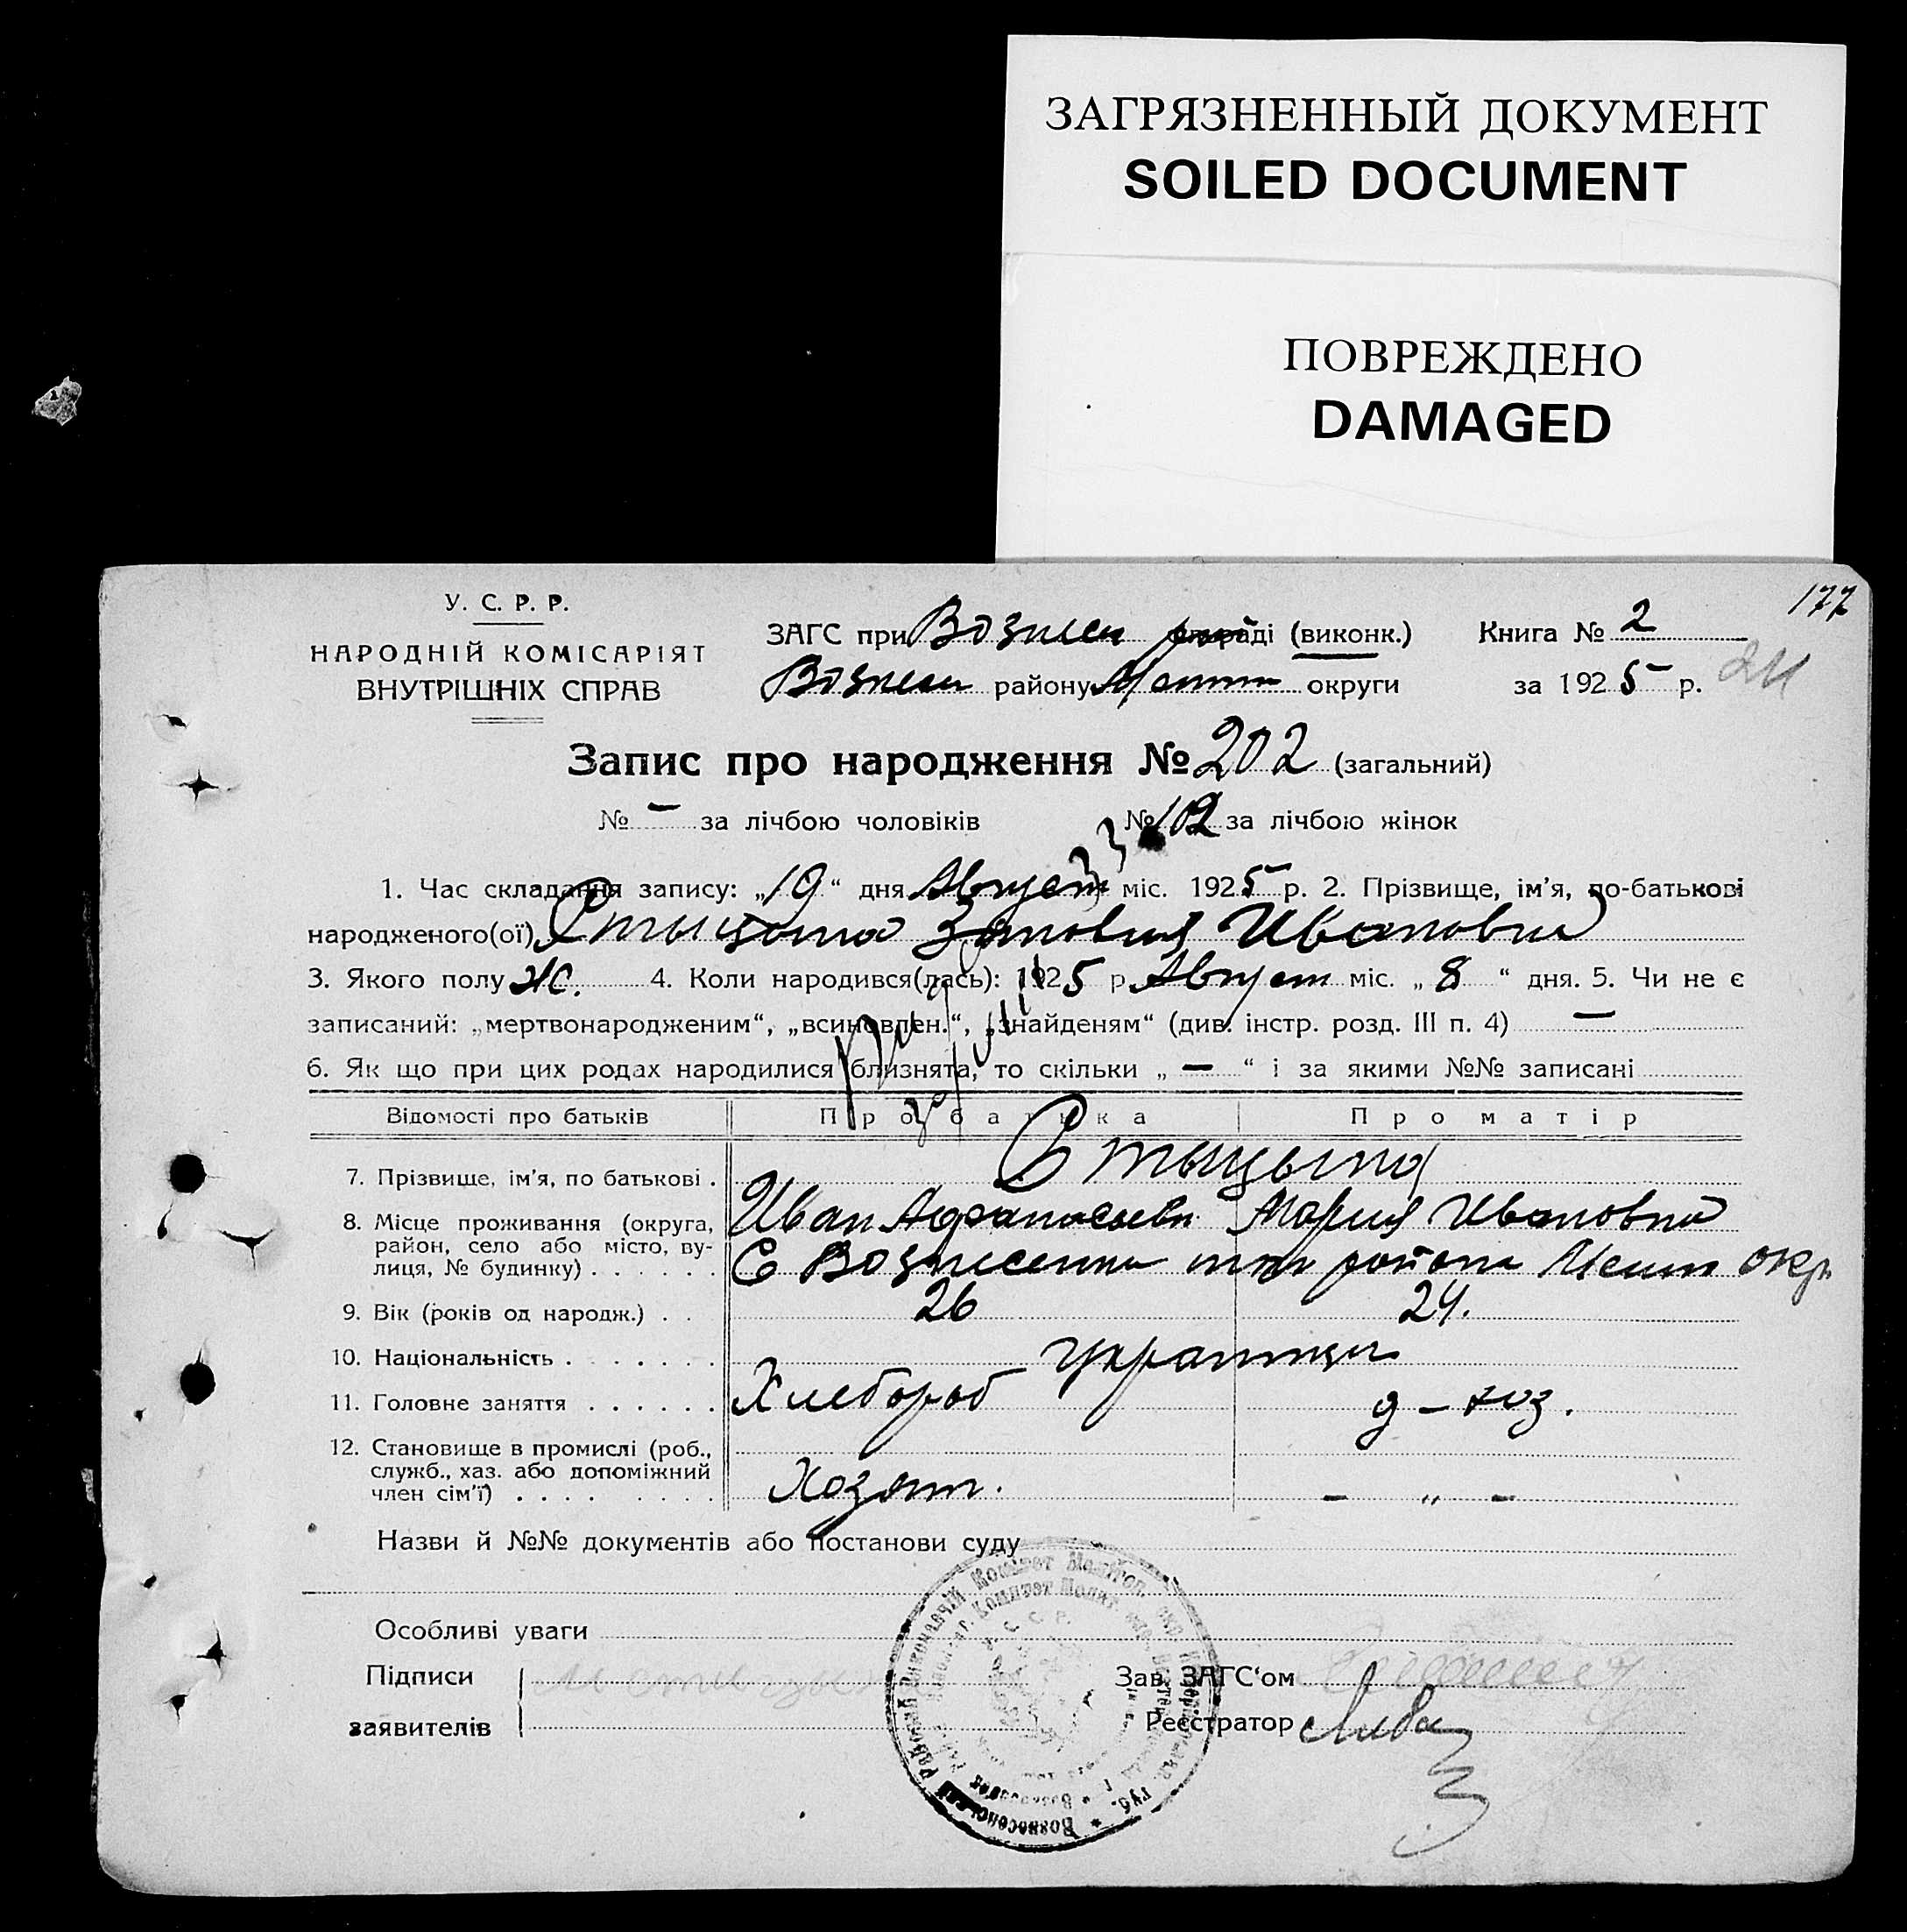 ЗАГРЯЗНЕННЫЙ ДОКУМЕНТ
SOILED DOCUMENT
ПОВРЕЖДЕНО
DAMAGED
177
У. С. Р. Р.
НАРОДНІЙ КОМІСАРІЯТ
ВНУТРІШНІХ СПРАВ
ЗАГС при Вознесен раді (виконк.) Книга № 2
Вознесен району округи за 1925 р.
211
Запис про народження № 202 (загальний)
№ — за лічбою чоловіків № 102 за лічбою жінок
1. Час складання запису: „19“ дня Август міс. 1925 р. 2. Прізвище, ім'я, по-батькові
народженого(ої) Стыцына Зиновия Ивановна
3. Якого полу Ж. 4. Коли народився(лась): 1925 р. Август міс. „8“ дня. 5. Чи не є
записаний: „мертвонародженим“, „всиновлен.“, „знайденям“ (див. інстр. розд. III п. 4) —
6. Як що при цих родах народилися близнята, то скільки „ — “ і за якими №№ записані
Відомості про батьків Про батька Про матір
7. Прізвище, ім'я, по батькові . Стыцына
Иван Афанасьевич Мария Ивановна
8. Місце проживання (округа, район, село або місто, вулиця, № будинку) . . . . . . С Вознесенка района окр
9. Вік (років од народж.) . . 26 24.
10. Національність . . . . . . . Украинцы
11. Головне заняття . . . . . . Хлебороб д – хоз.
12. Становище в промислі (роб.,
служб., хаз. або допоміжний
член сім'ї) . . . . Хозяин. – „ –
Назви й №№ документів або постанови суду
Особливі уваги
Підписи
заявителів
Зав. ЗАГС'ом
Реєстратор